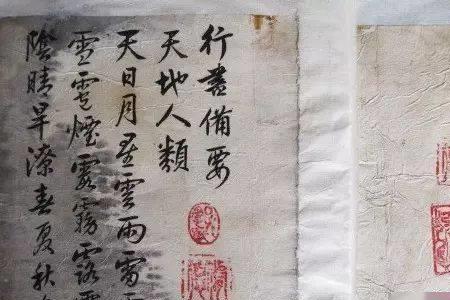 行書備要
天地人類
天日月星雲雨雷
雪雹煙霞霧露
陰晴旱潦春夏秋